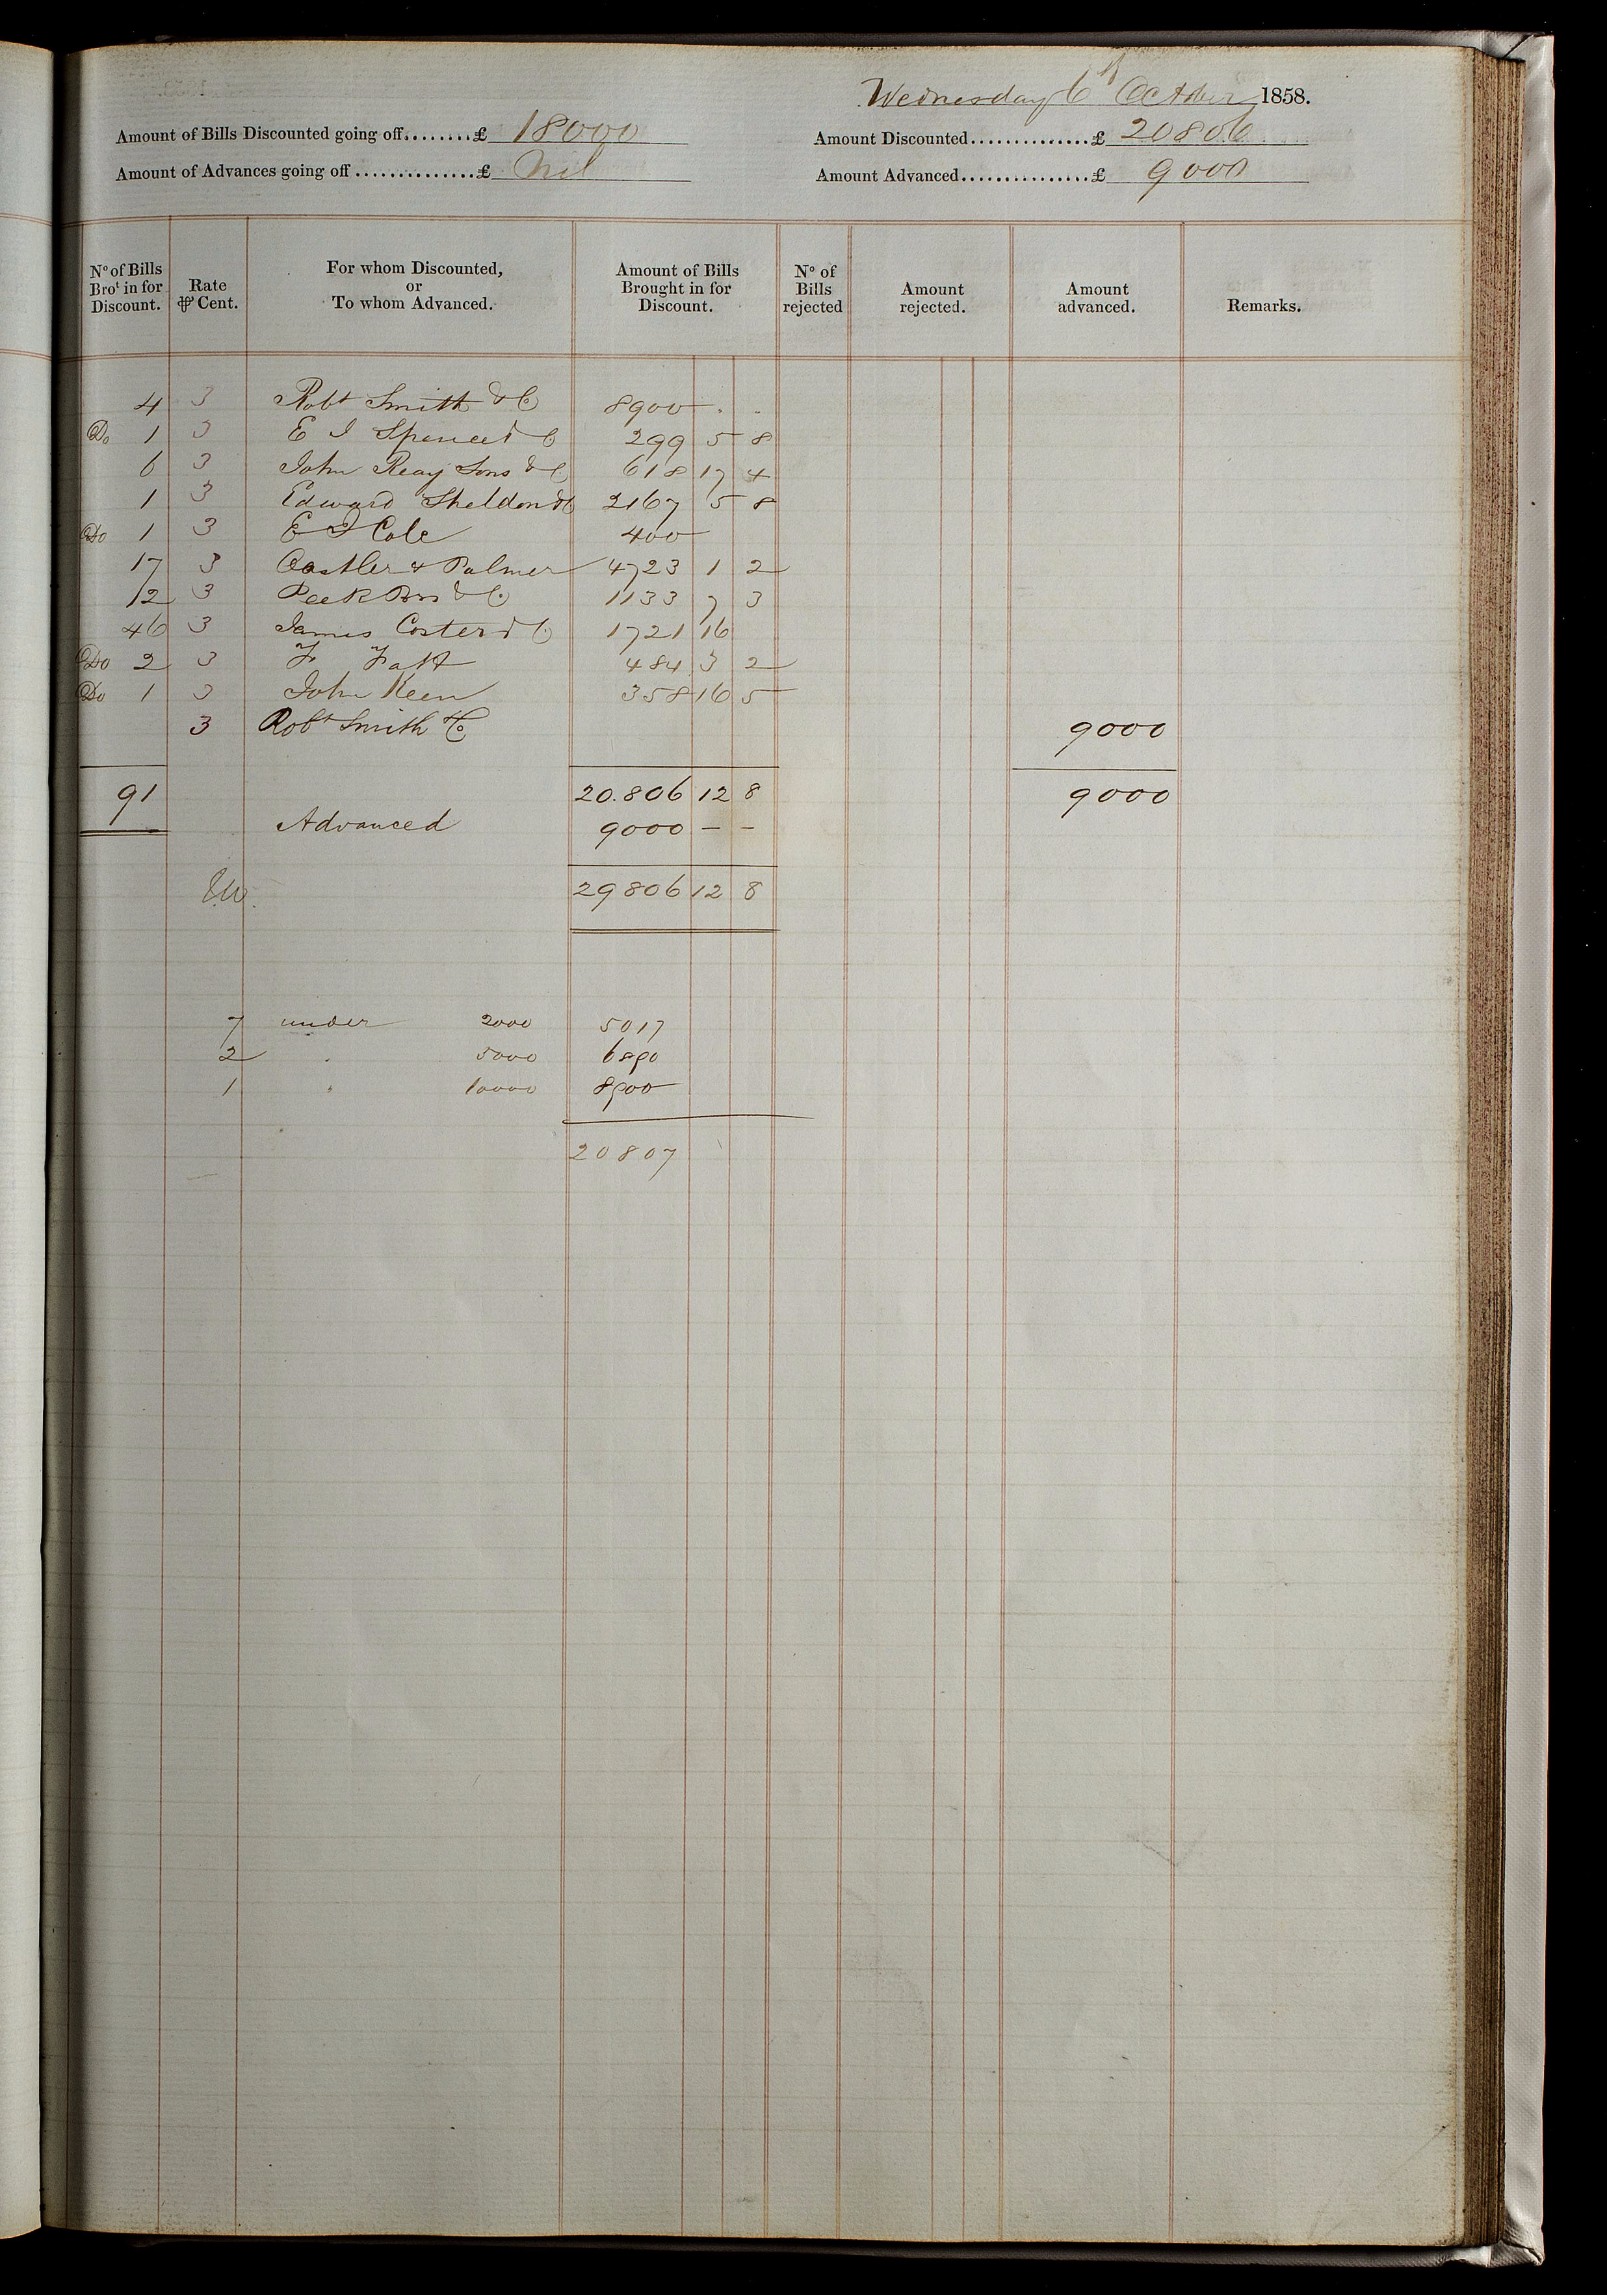 Wednesday 6th October 1858.
Amount of Bills Discounted going off........£ 18000 Amount Discounted..............£ 20806
Amount of Advances going off..............£ Nil Amount Advanced...............£ 9000
No of Bills Brot in for Discount. Rate ⅌ Cent. For whom Discounted, or To whom Advanced. Amount of Bills Brought in for Discount. No of Bills rejected Amount rejected. Amount advanced. Remarks.
4 3 Robt Smith & Co 8900 . .
Do 1 3 E J Spence & Co 299 5 8
6 3 John Reay Sons & Co 618 17 4
1 3 Edward Sheldon & Co 2167 5 8
Do 1 3 E J Cole 400
17 3 Castler & Palmer 4723 1 2
12 3 Peek Bros & Co 1133 7 3
46 3 James Coster & Co 1721 16
Do 2 3 F 484 3 2
Do 1 3 John Keen 358 16 5
3 Robt Smith & Co 9000
91 20.806 12 8 9000
Advanced 9000 – –
29806 12 8
7 under 2000 5017
2 . 5000 6890
1 " 10000 8900
20807